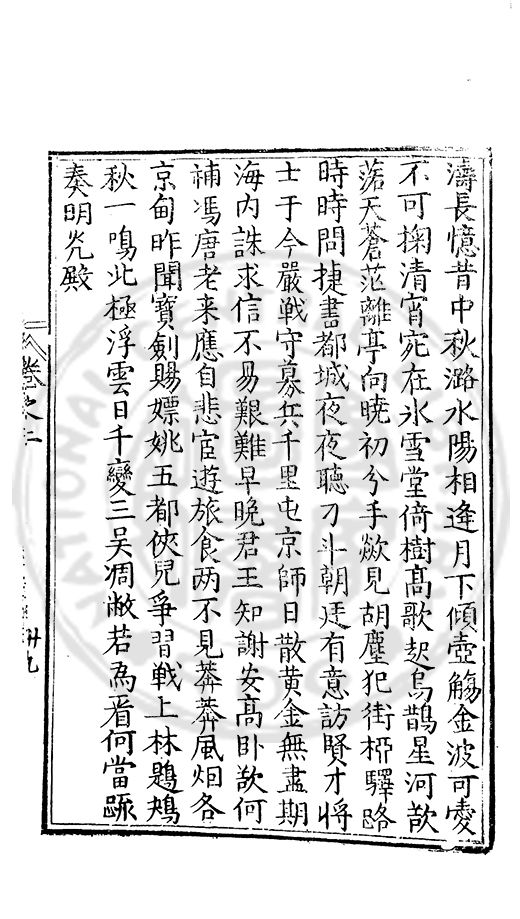 濤長憶昔中秋潞水陽相逢月下傾壺觴金波可愛
不可掬清宵宛在氷雪堂倚樹髙歌起烏鵲星河欲
落天蒼茫離亭向曉初分手歘見胡塵犯街椏驛路
時時問捷書都城夜夜聽刀斗朝廷有意訪賢才將
士于今嚴戰守募兵千里屯京師日散黄金無盡期
海内誅求信不易艱難早晚君王知謝安髙卧欲何
補馮唐老来應自悲宦遊旅食两不見莽莽風烟各
京甸昨聞寳劍賜嫖姚五都俠兒爭習戰上林鶗鴂
秋一鳴北極浮雲日千變三吴凋敝若為看何當䟽
奏明光殿
卷之二
卅九